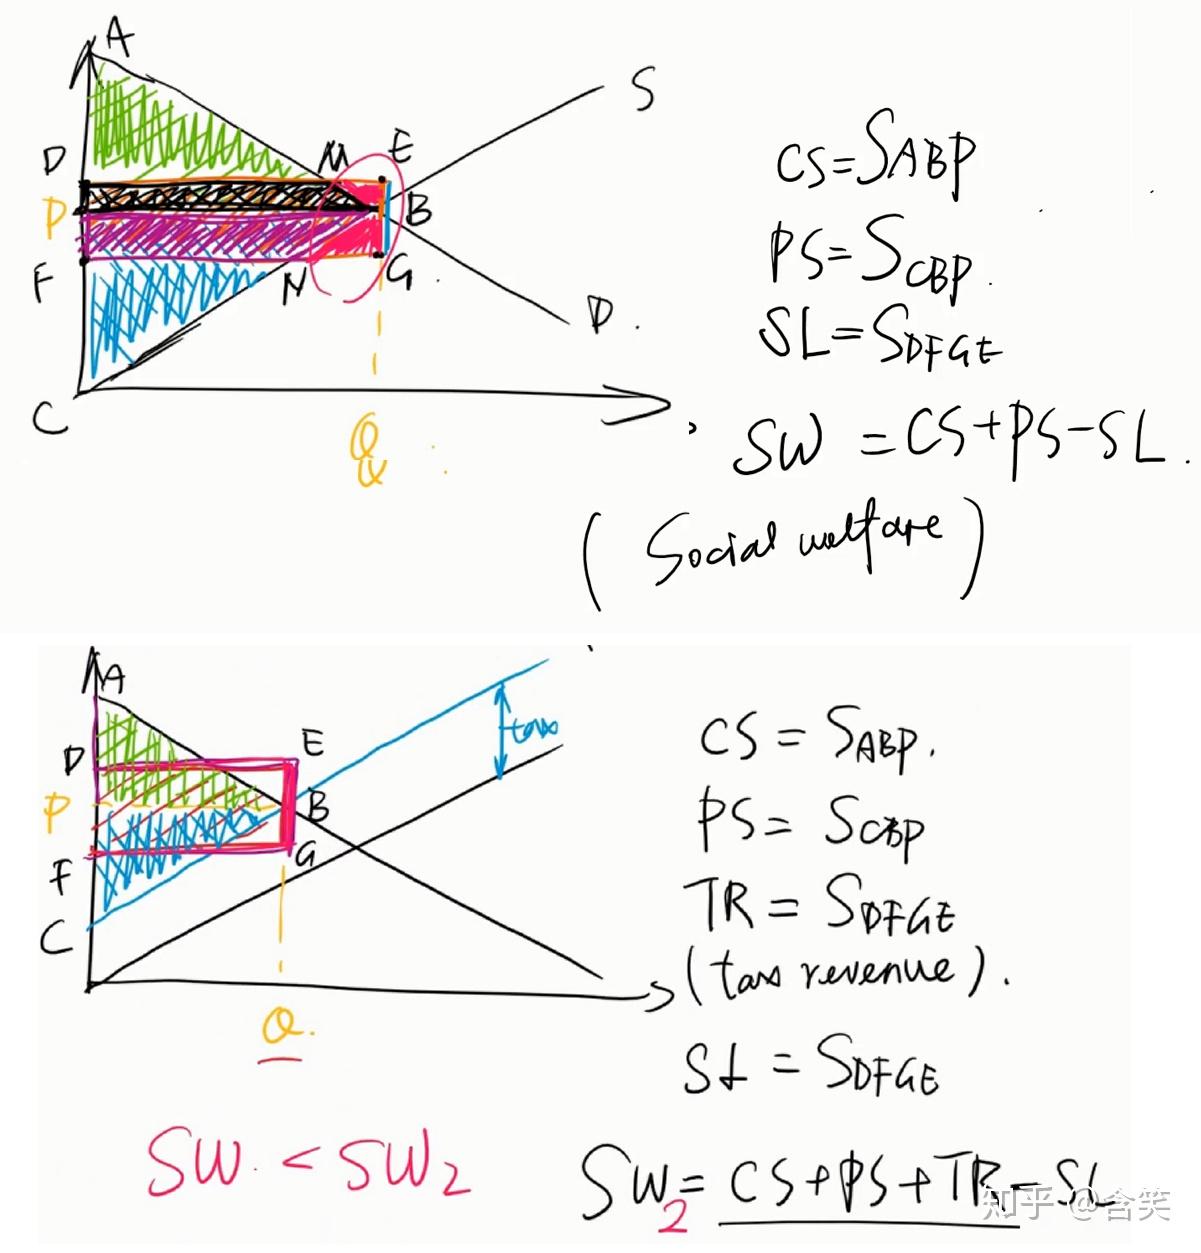 A
S
D
M
E
P
B
F
N
G
D.
C
Q
CS=SABP
PS=SCBP.
SL=SDFGE
SW =CS+PS-SL.
(Social welfare)
A
tax
D
E
P
B
G
F
C
Q.
CS = SABP.
PS= SCBP
TR = SDFGE
(tax revenue).
SL = SDFGE
SW. < SW2
SW2= CS+PS+TR-SL
知乎 @含笑